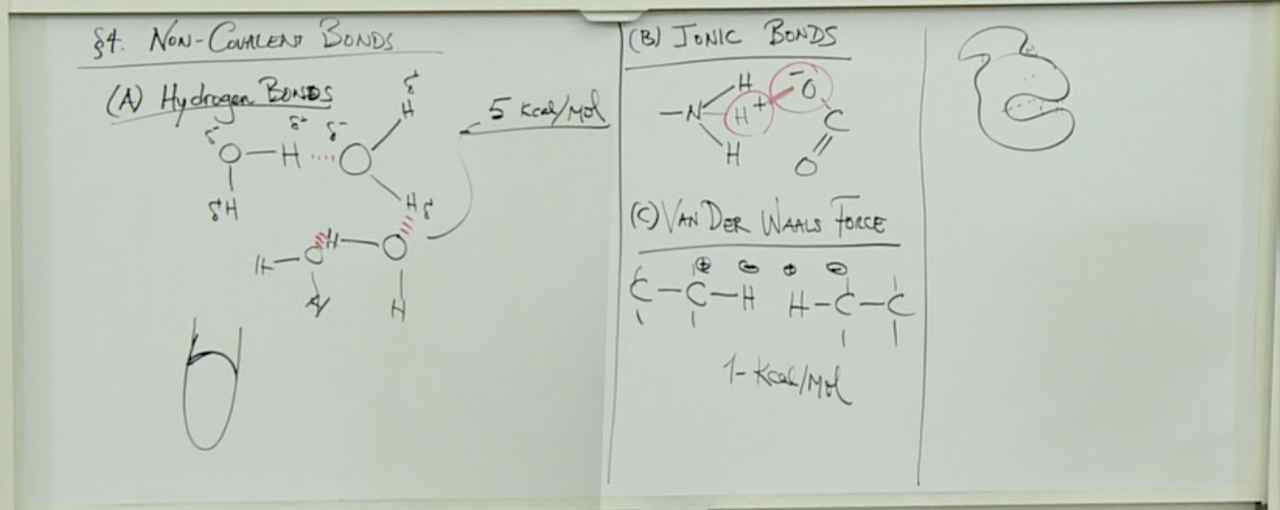 §4. NON-COVALENT BONDS
(A) Hydrogen BONDS
δ+
H
δ- δ+ δ-
O H O
δ H
H δ
5 Kcal/Mol
H O H O
H H
(B) IONIC BONDS
H - O
N H + C
H O
(C) VAN DER WAALS FORCE
⊕ ⊖ ⊕ ⊖
C-C-H H-C-C
1-Kcal/Mol